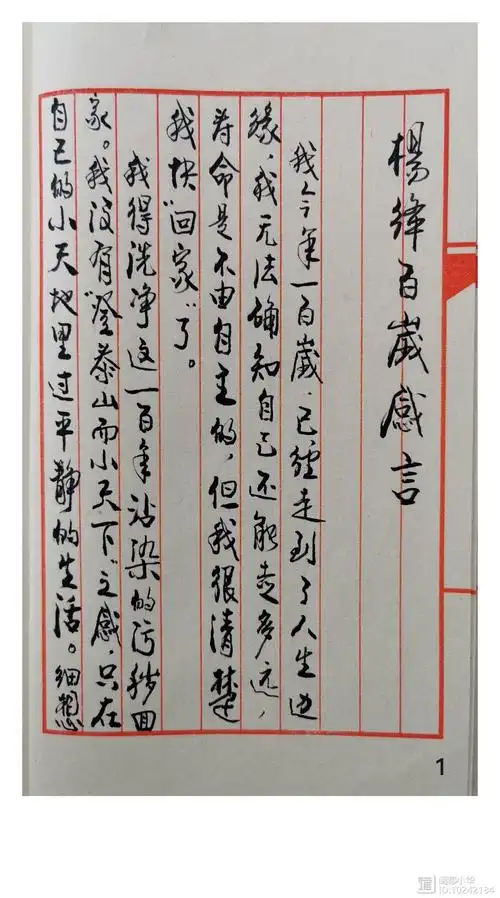 楊绛百歲感言
我今年一百歲，已經走到了人生边
缘，我无法确知自己还能走多远，
寿命是不由自主的，但我很清楚
我快“回家”了。
我得洗净这一百年沾染的污秽回
家。我没有“登泰山而小天下”之感，只在
自己的小天地里过平静的生活。细想
1
ID:10242184